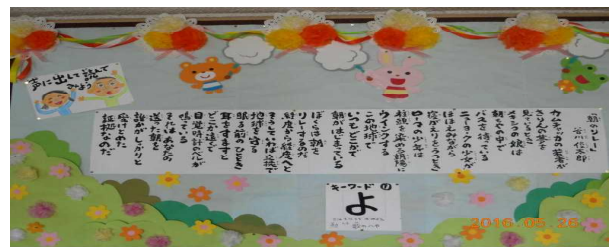 声に出して読んで
みよう
朝のリレー
谷川俊太郎
カムチャッカの若者が
きりんの夢を
見ているとき
メキシコの娘は
朝もやの中で
バスを待っている
ニューヨークの少女が
ほほえみながら
寝がえりをうつとき
ローマの少年は
柱頭を染める朝陽に
ウインクする
この地球では
いつもどこかで
朝がはじまっている
ぼくらは朝を
リレーするのだ
経度から経度へと
そうしていわば交替で
地球を守る
眠る前のひととき
耳をすますと
どこか遠くで
目覚時計のベルが
鳴ってる
それはあなたの
送った朝を
誰かがしっかりと
受けとめた
証拠なのだ
キーワード
よ
2016.05.26